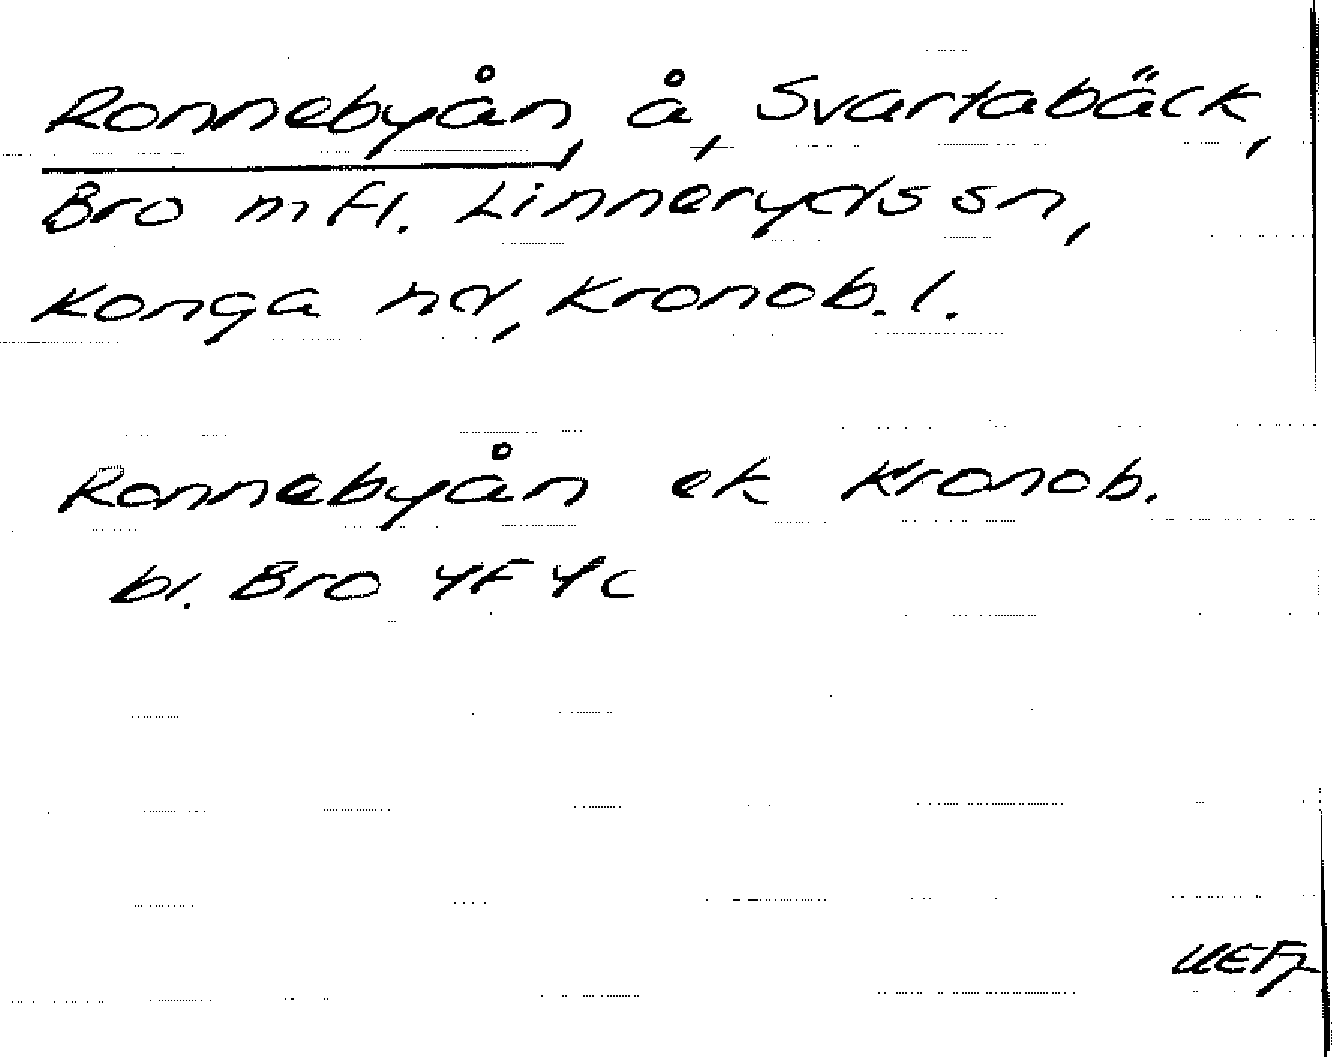 Ronnebyån, å, Svartabäck,
Bro m fl. Linneryds sn,
Konga hd, Kronob. l.
Ronnebyån ek Kronob.
bl. Bro 4F 4c